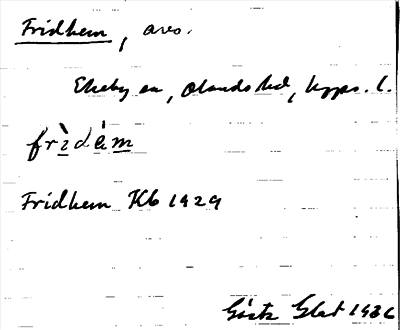 Fridhem, avs.
Ekeby sn, Olands hd, Upps. l.
frìdém
Fridhem Kb 1929
Gösta Glet 1936